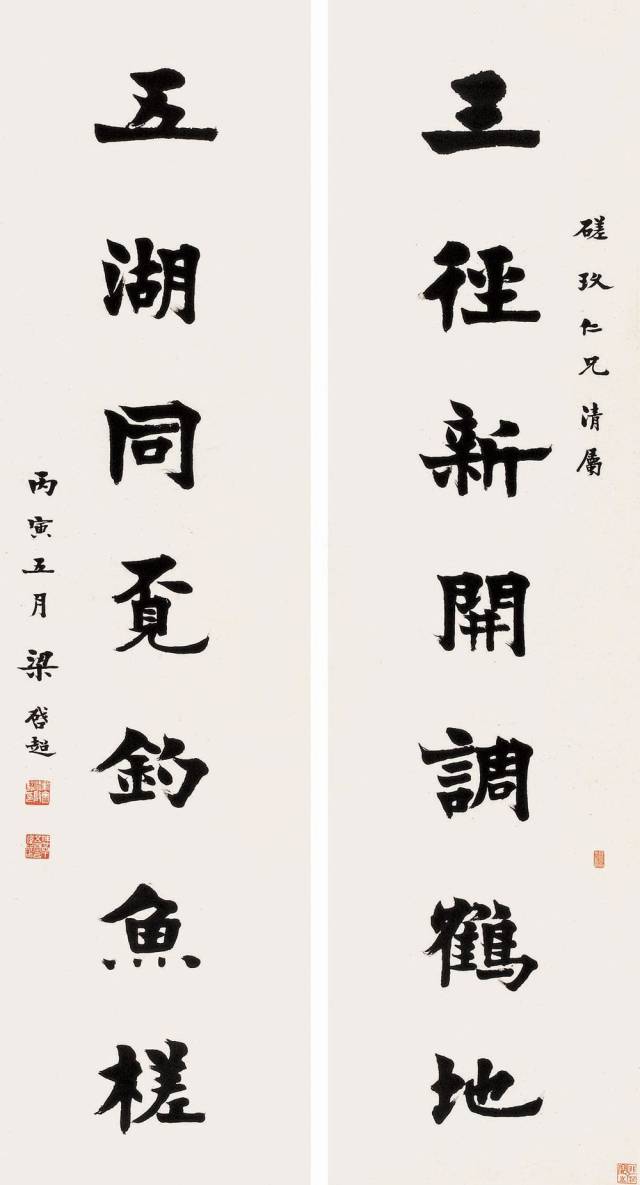 磋玖仁兄清屬
三徑新開調鶴地
五湖同覓釣魚槎
丙寅五月 梁啓超